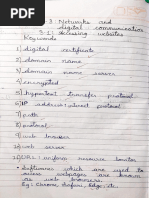 3: Networks and
digital communication
3.1: Accessing websites
Keywords
1) digital certificate
2) domain name
3) domain name server
4) encrypted
5) hypertext transfer protocol
6) IP address: internet protocol
7) path
8) protocol
9) web browser
10) web server
11) URL: uniform resource locator
• Softwares which are used to
access webpages are known
as web browser.
Eg: Chrome, Safari, Edge etc.